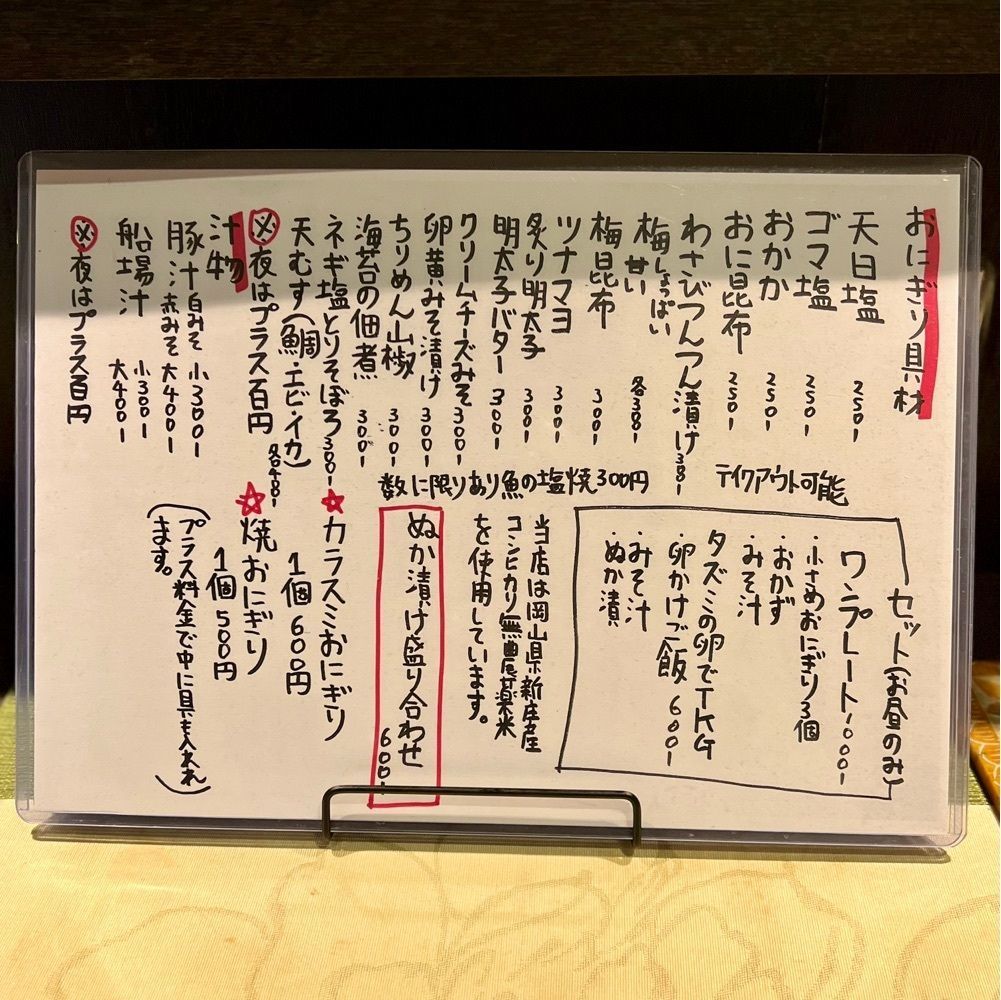 おにぎり具材
天日塩 250-
ゴマ塩 250-
おかか 250-
おに昆布 250-
わさびつんつん漬け 350-
梅 甘い しょっぱい 各300-
梅昆布 300-
ツナマヨ 300-
炙り明太子 300-
明太子バター 300-
クリームチーズみそ 300-
卵黄みそ漬け 300-
ちりめん山椒 300-
海苔の佃煮 300-
ネギ塩とりそぼろ 300-
天むす(鯛・エビ・イカ) 各400-
※夜はプラス百円
汁物
豚汁 白みそ 赤みそ 小300- 大400-
船場汁 小300- 大400-
※夜はプラス百円
テイクアウト可能
数に限りあり魚の塩焼300円
セット(お昼のみ)
ワンプレート1,000-
・小さめおにぎり3個
・おかず
・みそ汁
タズミの卵でTKG
卵かけご飯 600-
・みそ汁
・ぬか漬
当店は岡山県新庄産
コシヒカリ無農薬米
を使用しています。
ぬか漬け盛り合わせ 600-
☆カラスミおにぎり
1個600円
☆焼おにぎり
1個500円
(プラス料金で中に具も入れれ
ます。)